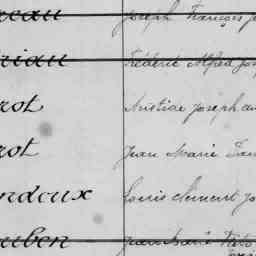 eau Joseph François Jo
riau Frédéric Alfred Jos
rot Aristide Joseph au
rot Jean Marie
ndoux Louis Clément Jo
uben Jean